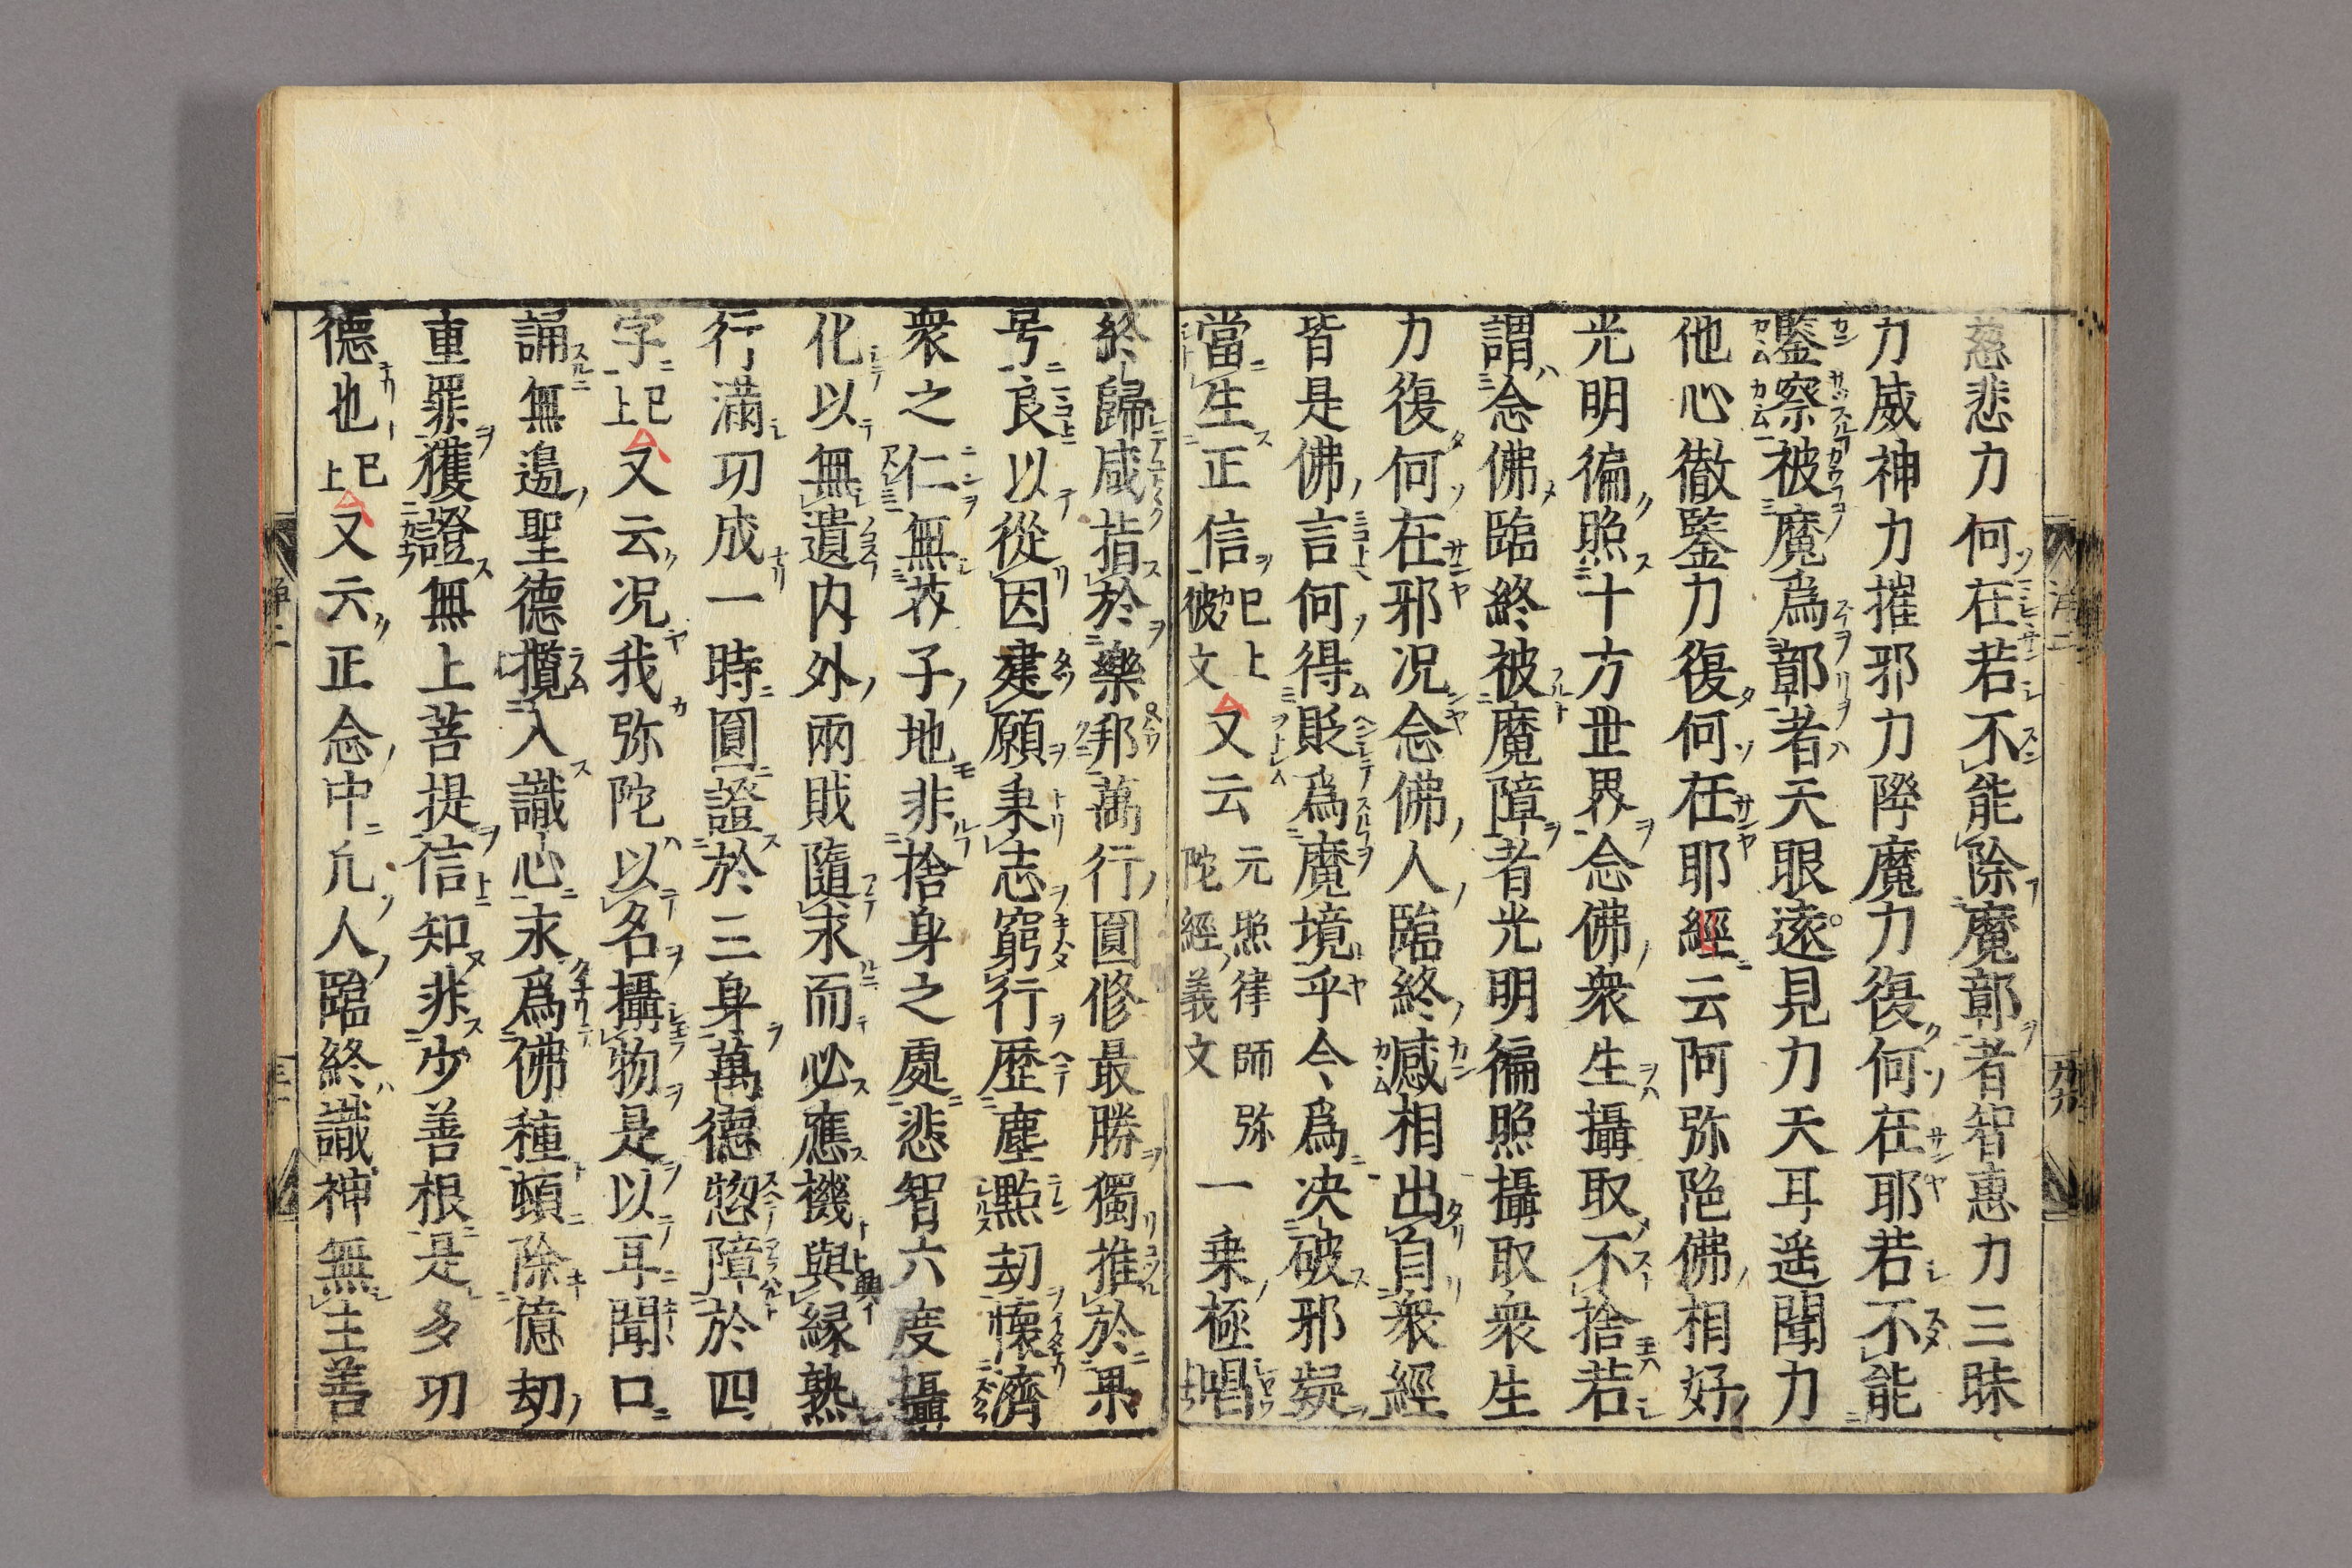 慈悲力何在若不能除魔鄣者智惠力三昧
力威神力摧邪力降魔力復何在耶若不能
鑒察被魔爲鄣者天眼遠見力天耳遥聞力
他心徹鑒力復何在耶經云阿弥陀佛相好
光明徧照十方世界念佛衆生攝取不捨若
謂念佛臨終被魔障者光明徧照攝取衆生
力復何在邪况念佛人臨終感相出自衆經
皆是佛言何得貶爲魔境乎今爲决破邪疑
當生正信已上彼文又云元照律師弥陀經義文一乗極唱
終歸咸指於樂邦萬行圓修最勝獨推於果
号良以從因建願秉志窮行歴塵㸃刧懷濟
衆之仁無芥子地非捨身之處悲智六度攝
化以無遺内外兩財隨求而必應機與縁熟
行滿功成一時圓證於三身萬德惣障於四
字已上又云况我弥陀以名攝物是以耳聞口
誦無邉聖德攬入識心永爲佛種頓除億刧
重罪獲證無上菩提信知非少善根是多功
德也已上又云正念中凢人臨終識神無主善